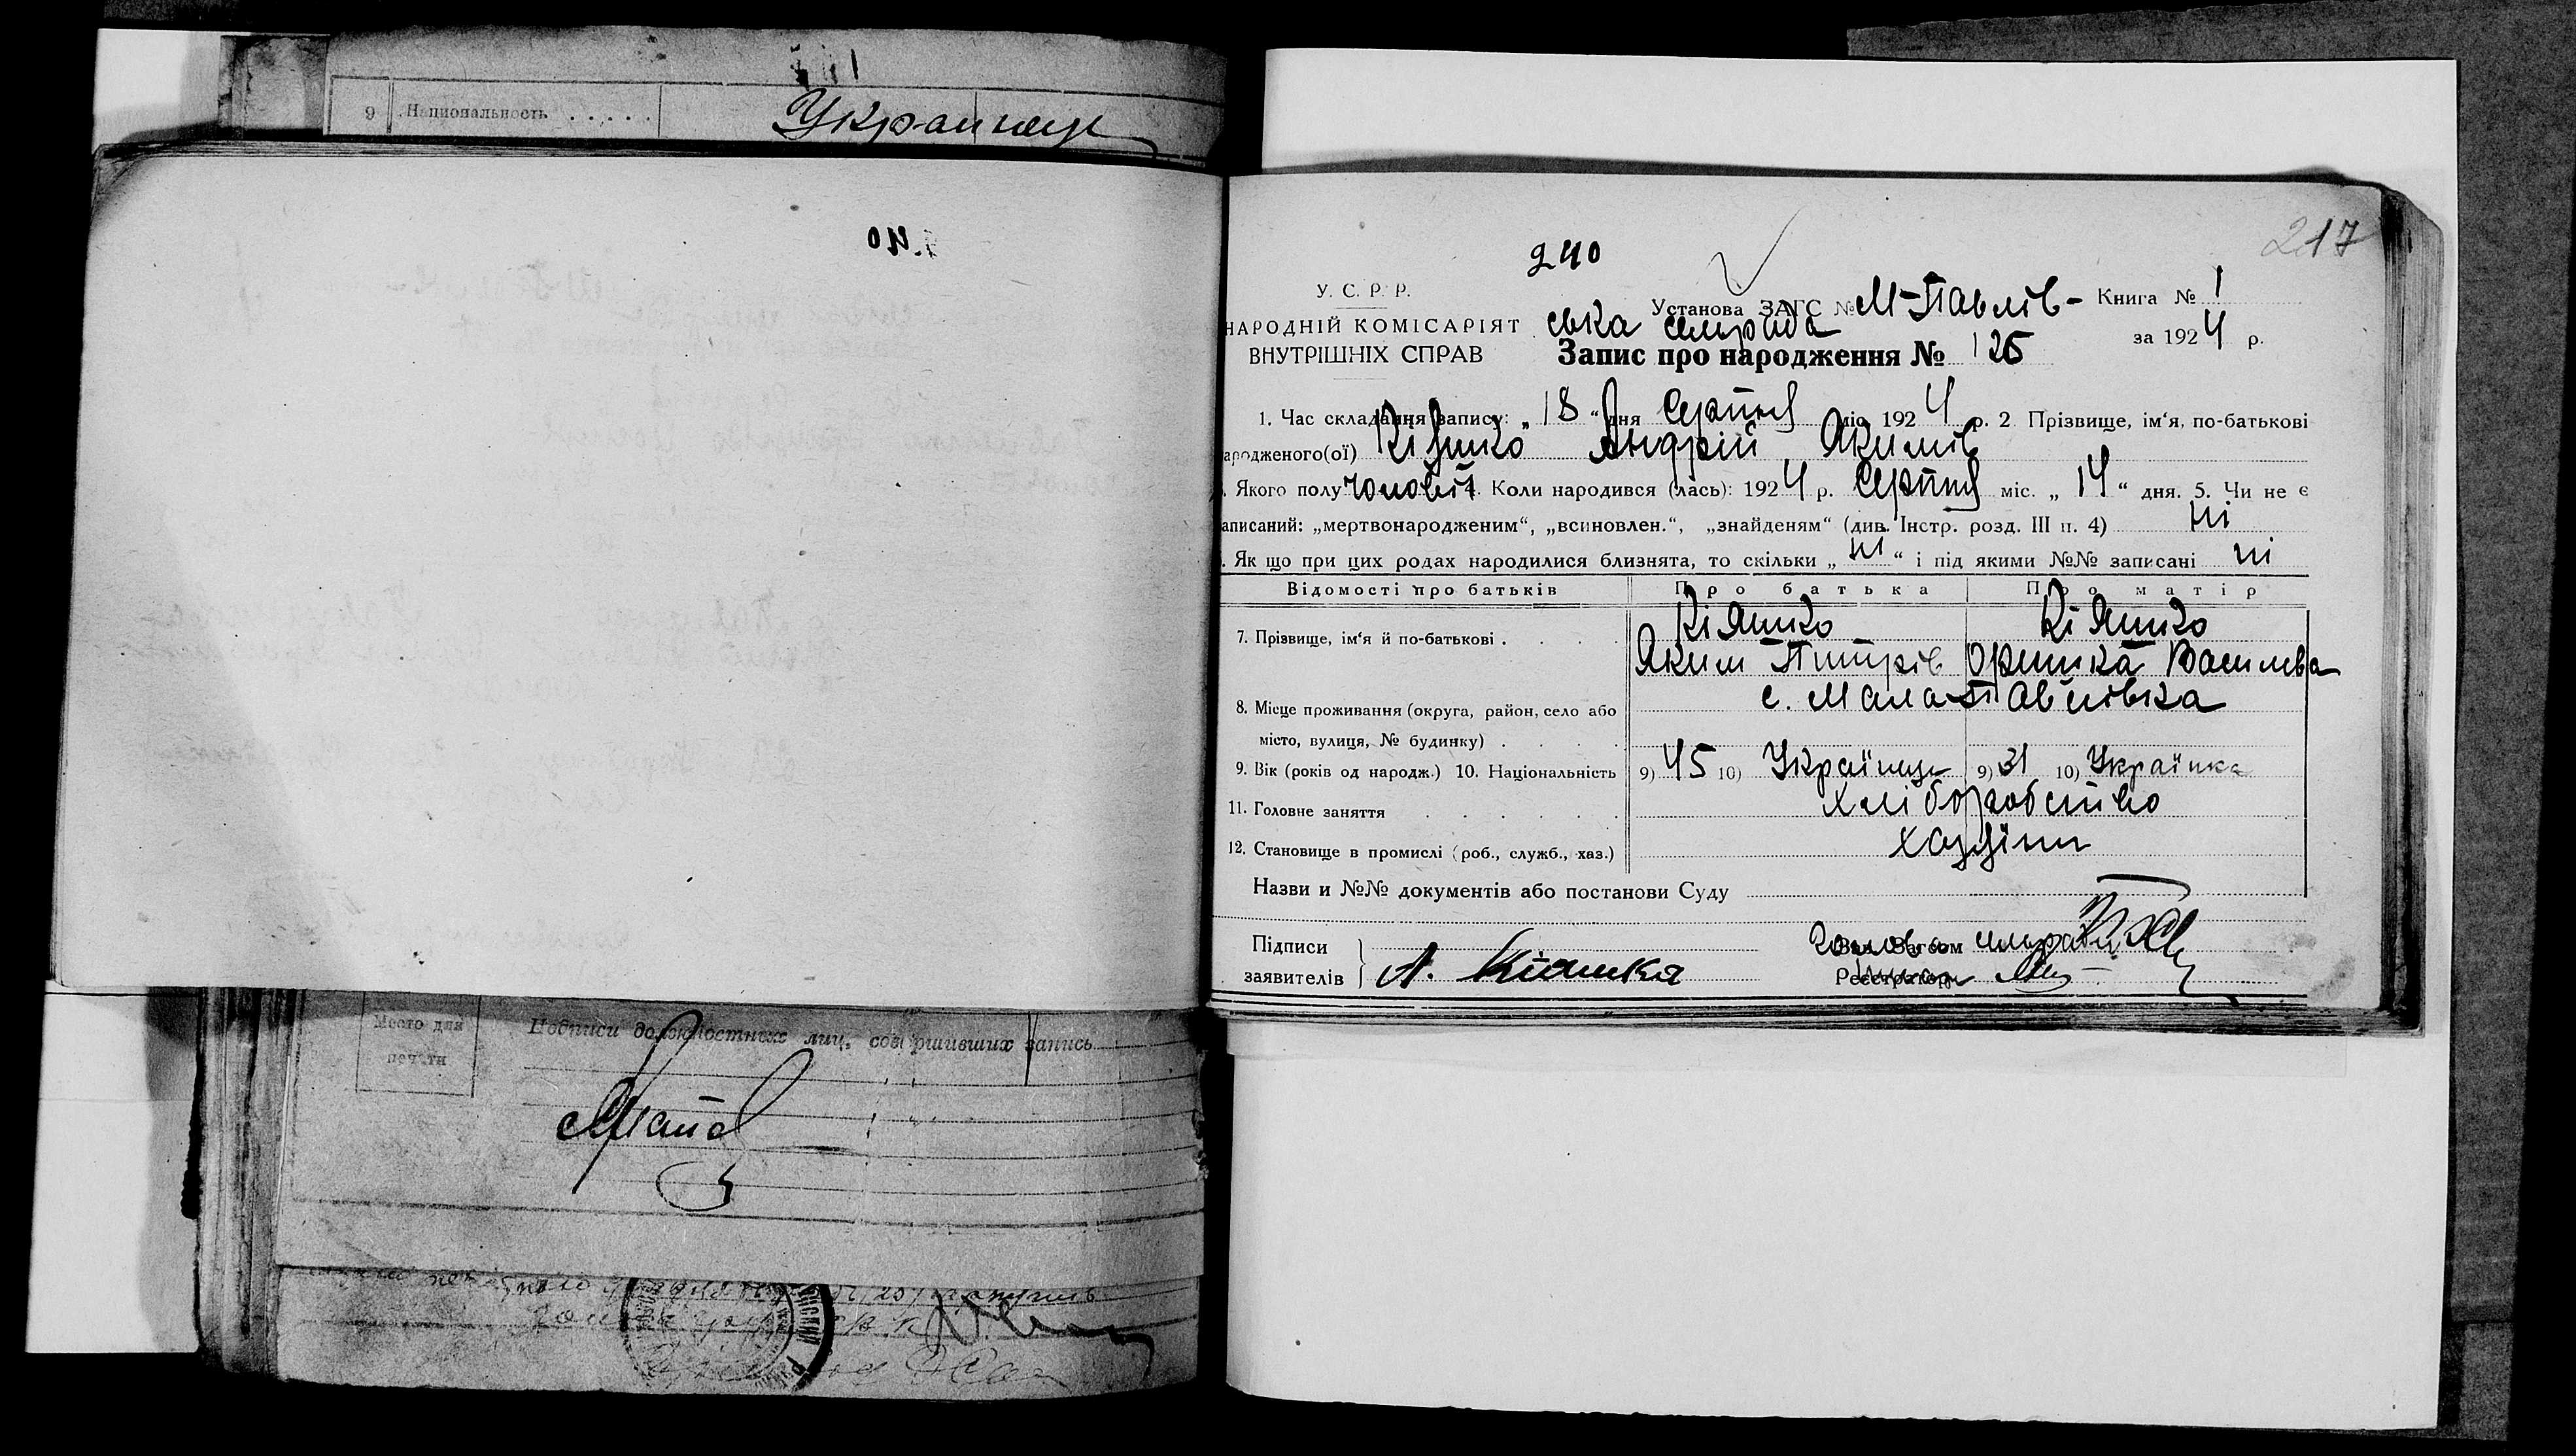 9 Национальность . . . . . Украинец
240
217
У. С. Р. Р.
НАРОДНІЙ КОМІСАРІЯТ
ВНУТРІШНІХ СПРАВ
Установа ЗАГС № М-Павлів- Книга № 1
ська сельрада за 1924 р.
Запис про народження № 125
1. Час складання запису: „18“ дня Серпня міс. 1924 р. 2 Прізвище, ім‘я, по-батькові
ародженого(ої) Кіяшко Андрій Якимів
. Якого полу чоловіч 4. Коли народився (лась): 1924 р. Серпня міс. „14“ дня. 5. Чи не є
аписаний: „мертвонародженим“, „всиновлен.“, „знайденям“ (див. Інстр. розд. III п. 4) ні
. Як що при цих родах народилися близнята, то скільки „ні“ і під якими №№ записані ні
Відомості про батьків Про батька Про матір
Кіяшко Кіяшко
7. Прізвище, ім‘я й по-батькові . . . . Яким Питрів Оришка Василева
8. Місце проживання (округа, район, село або с. Мала Павлівка
місто, вулиця, № будинку) . . . .
9. Вік (років од народж.) 10. Національність 9) 45 10) Українец 9) 31 10) Українка
11. Головне заняття . . . . . . хліборобство
12. Становище в промислі (роб., служб., хаз.) хазяїни
Назви и №№ документів або постанови Суду
Підписи Голова сельради
заявителів А. Кіяшка Реєстратор
Место для
печати
Подписи должностных лиц, совершивших запись